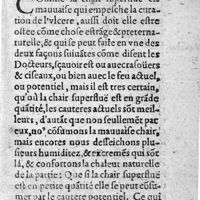 mauuaise qui empesche la cura-
tion de l'vlcere, aussi doit elle estre
ostée cõme chose estrãge & preterna-
turelle, & qui se peut faire en vne des
deux façons suiuãtes cõme disent les
Docteurs, sçauoir est ou auec rasoüers
& ciseaux, ou bien auec le feu actuel,
ou potentiel, mais il est tres certain,
qu'où la chair superfluë est en grãde
quantité, les cauteres actuels sõt meil-
leurs, d'autãt que non seullemẽt par
eux, no° cõsumons la mauuaise chair,
mais encores nous desseichons plu-
sieurs humiditez, & excremẽs qui sõt
là, & confortons la chaleur naturelle
de la partie: Que si la chair superfluë
est en petite quãtité elle se peut cõsu-
mer par le cautere potentiel. Ce qui